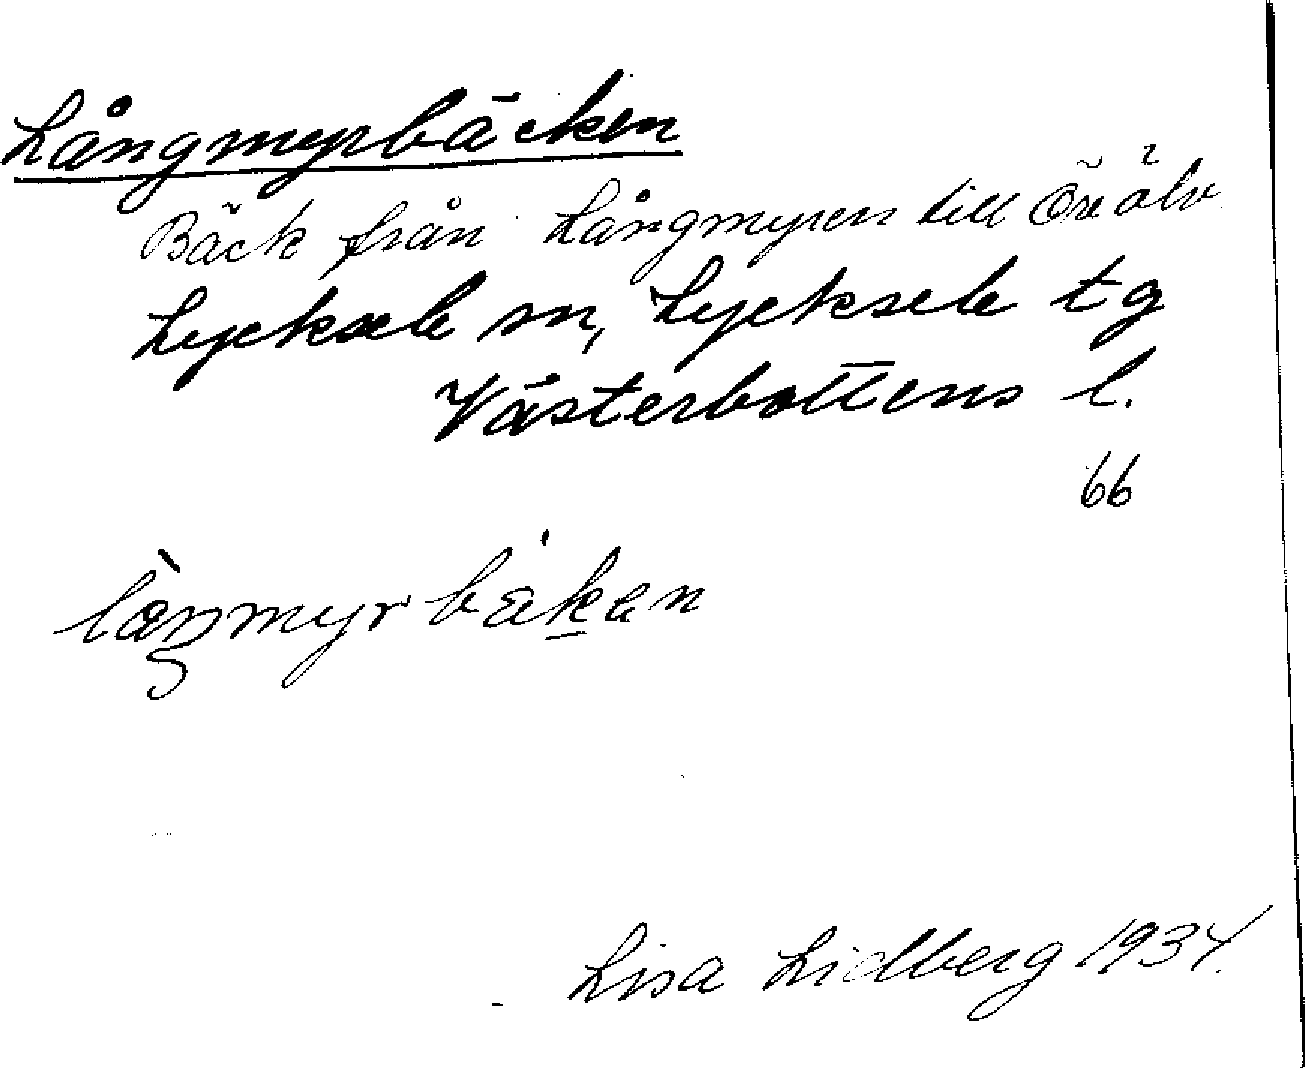 Långmyrbäcken
Bäck från Långmyren till Öreälv
Lycksele sn, Lycksele tg
Västerbottens l.
66
Lisa Lidberg 1934.